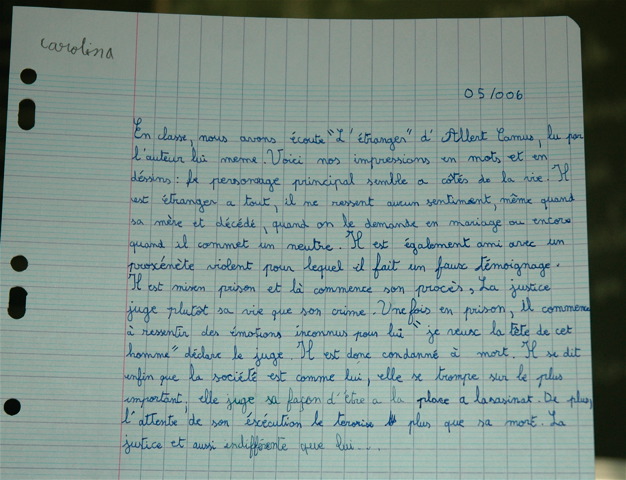 carolina
05/006
En classe, nous avons écouté "L'étranger" d'Albert Camus, lu par
l'auteur lui meme. Voici nos impressions en mots et en
déssins : Le personnage principal semble a côtés de la vie. Il
est étranger a tout, il ne ressent aucun sentiment, même quand
sa mère et décédé, quand on le demande en mariage ou encore
quand il commet un meutre. Il est également ami avec un
proxénète violent pour lequel il fait un faux témoignage.
Il est misen prison et là commence son procès, La justice
juge plutot sa vie que son crime. Une fois en prison, il commence
à ressentir des émotions inconnus pour lui " je veux la tête de cet
homme" déclare le juge. Il est donc condanné à mort. Il se dit
enfin que la société est comme lui, elle se trompe sur le plus
important, elle juge sa façon d'être a la place a lasasinat. De plus,
l'attente de son éxécution le terorise plus que sa mort. La
justice et aussi indifférente que lui...